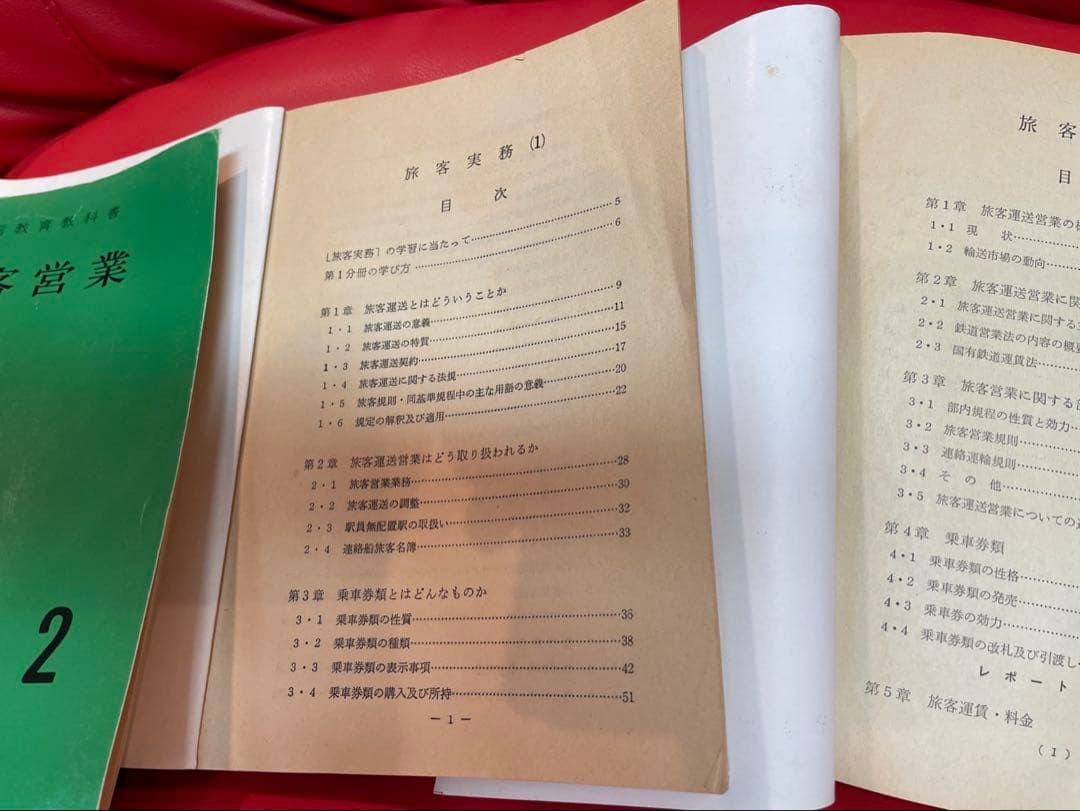 教育教科書
客営業
2
旅客実務 (1)
目次
〔旅客実務〕の学習に当たって……5
第1分冊の学び方……6
第1章 旅客運送とはどういうことか……9
1・1 旅客運送の意義……11
1・2 旅客運送の特質……15
1・3 旅客運送契約……17
1・4 旅客運送に関する法規……20
1・5 旅客規則・同基準規程中の主な用語の意義……22
1・6 規定の解釈及び適用
第2章 旅客運送営業はどう取り扱われるか
2・1 旅客営業業務……28
2・2 旅客運送の調整……30
2・3 駅員無配置駅の取扱い……32
2・4 連絡船旅客名簿……33
第3章 乗車券類とはどんなものか
3・1 乗車券類の性質……36
3・2 乗車券類の種類……38
3・3 乗車券類の表示事項……42
3・4 乗車券類の購入及び所持……51
— 1 —
旅客
目
第1章 旅客運送営業の
1・1 現状……
1・2 輸送市場の動向……
第2章 旅客運送営業に関
2・1 旅客運送営業に関する
2・2 鉄道営業法の内容の概要
2・3 国有鉄道運賃法……
第3章 旅客営業に関する
3・1 部内規程の性質と効力……
3・2 旅客営業規則……
3・3 連絡運輸規則……
3・4 その他……
3・5 旅客運送営業についての
第4章 乗車券類
4・1 乗車券類の性格……
4・2 乗車券類の発売……
4・3 乗車券の効力……
4・4 乗車券類の改札及び引渡し
レポート
第5章 旅客運賃・料金
(1)